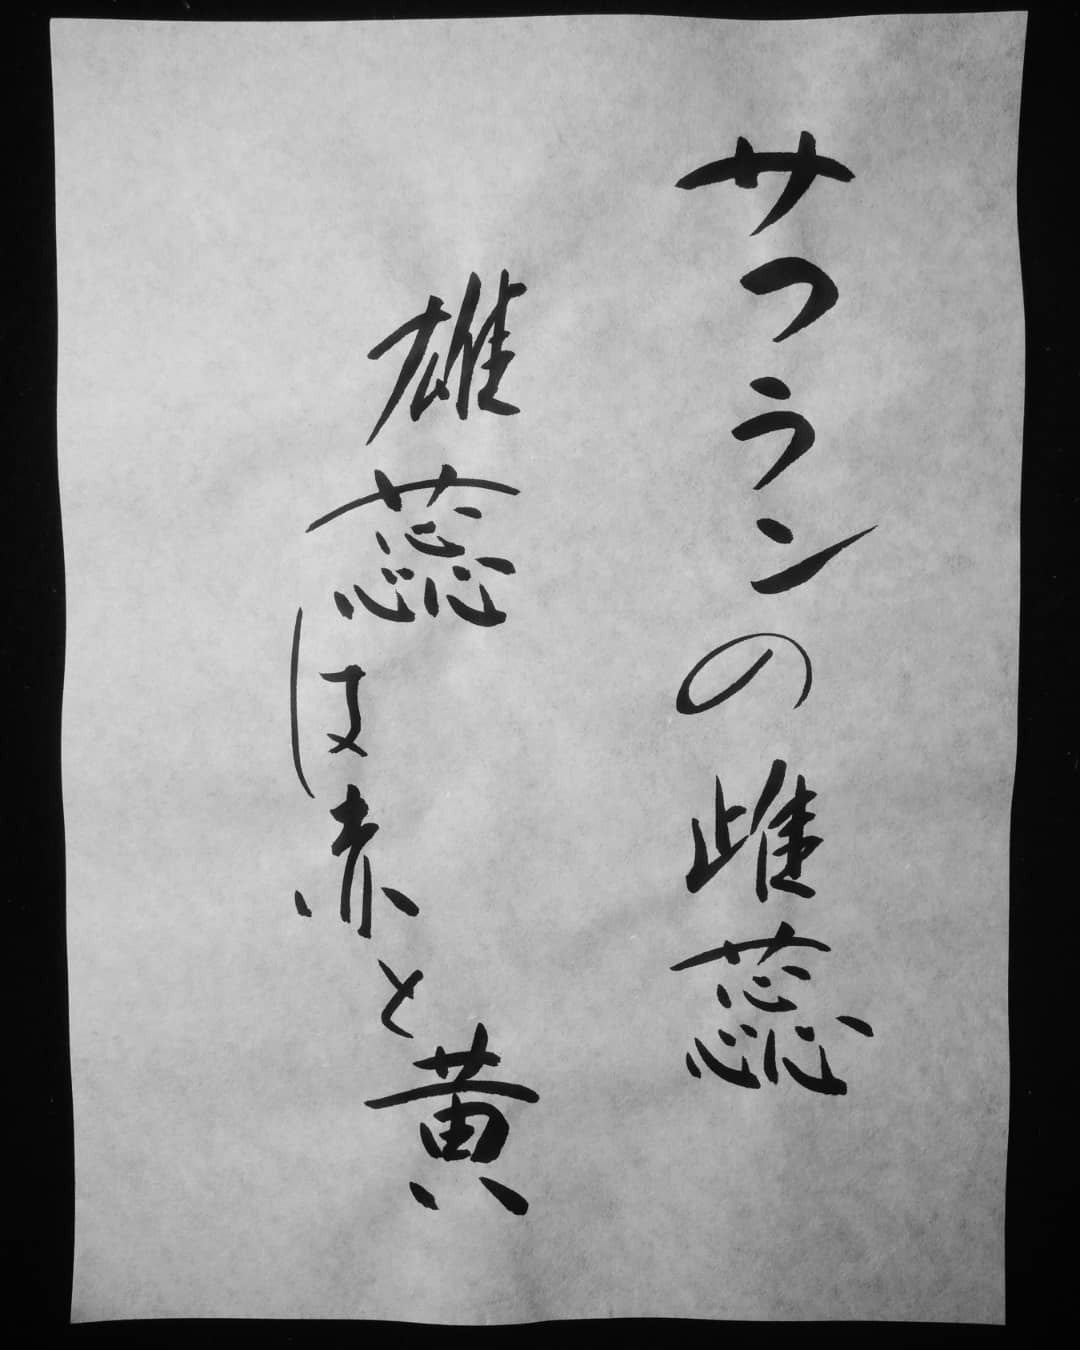 サフランの雌蕊
雄蕊は赤と黄